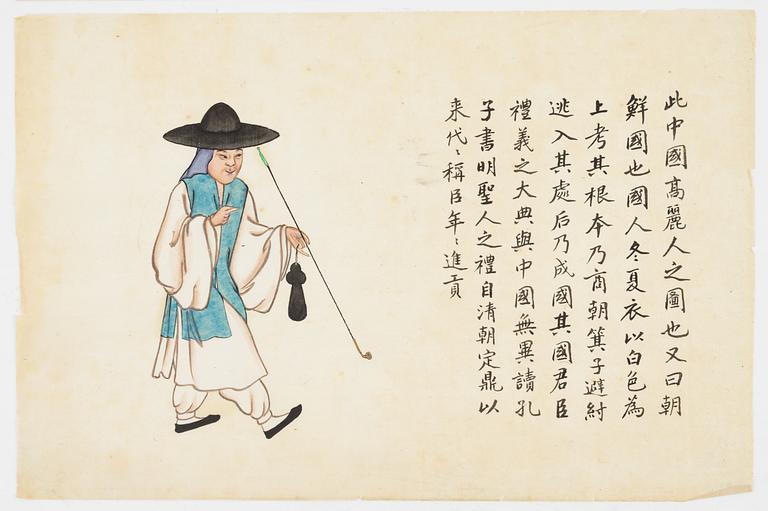 此中國高麗人之圖也又曰朝
鮮國也國人冬夏衣以白色為
上考其根本乃商朝箕子避紂
逃入其處后乃成國其國君臣
禮義之大典與中國無異讀孔
子書明聖人之禮自清朝定鼎以
来代〻稱臣年〻進貢